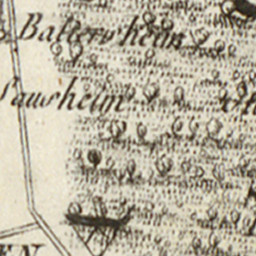 Baltersheim
Sausheim
EN